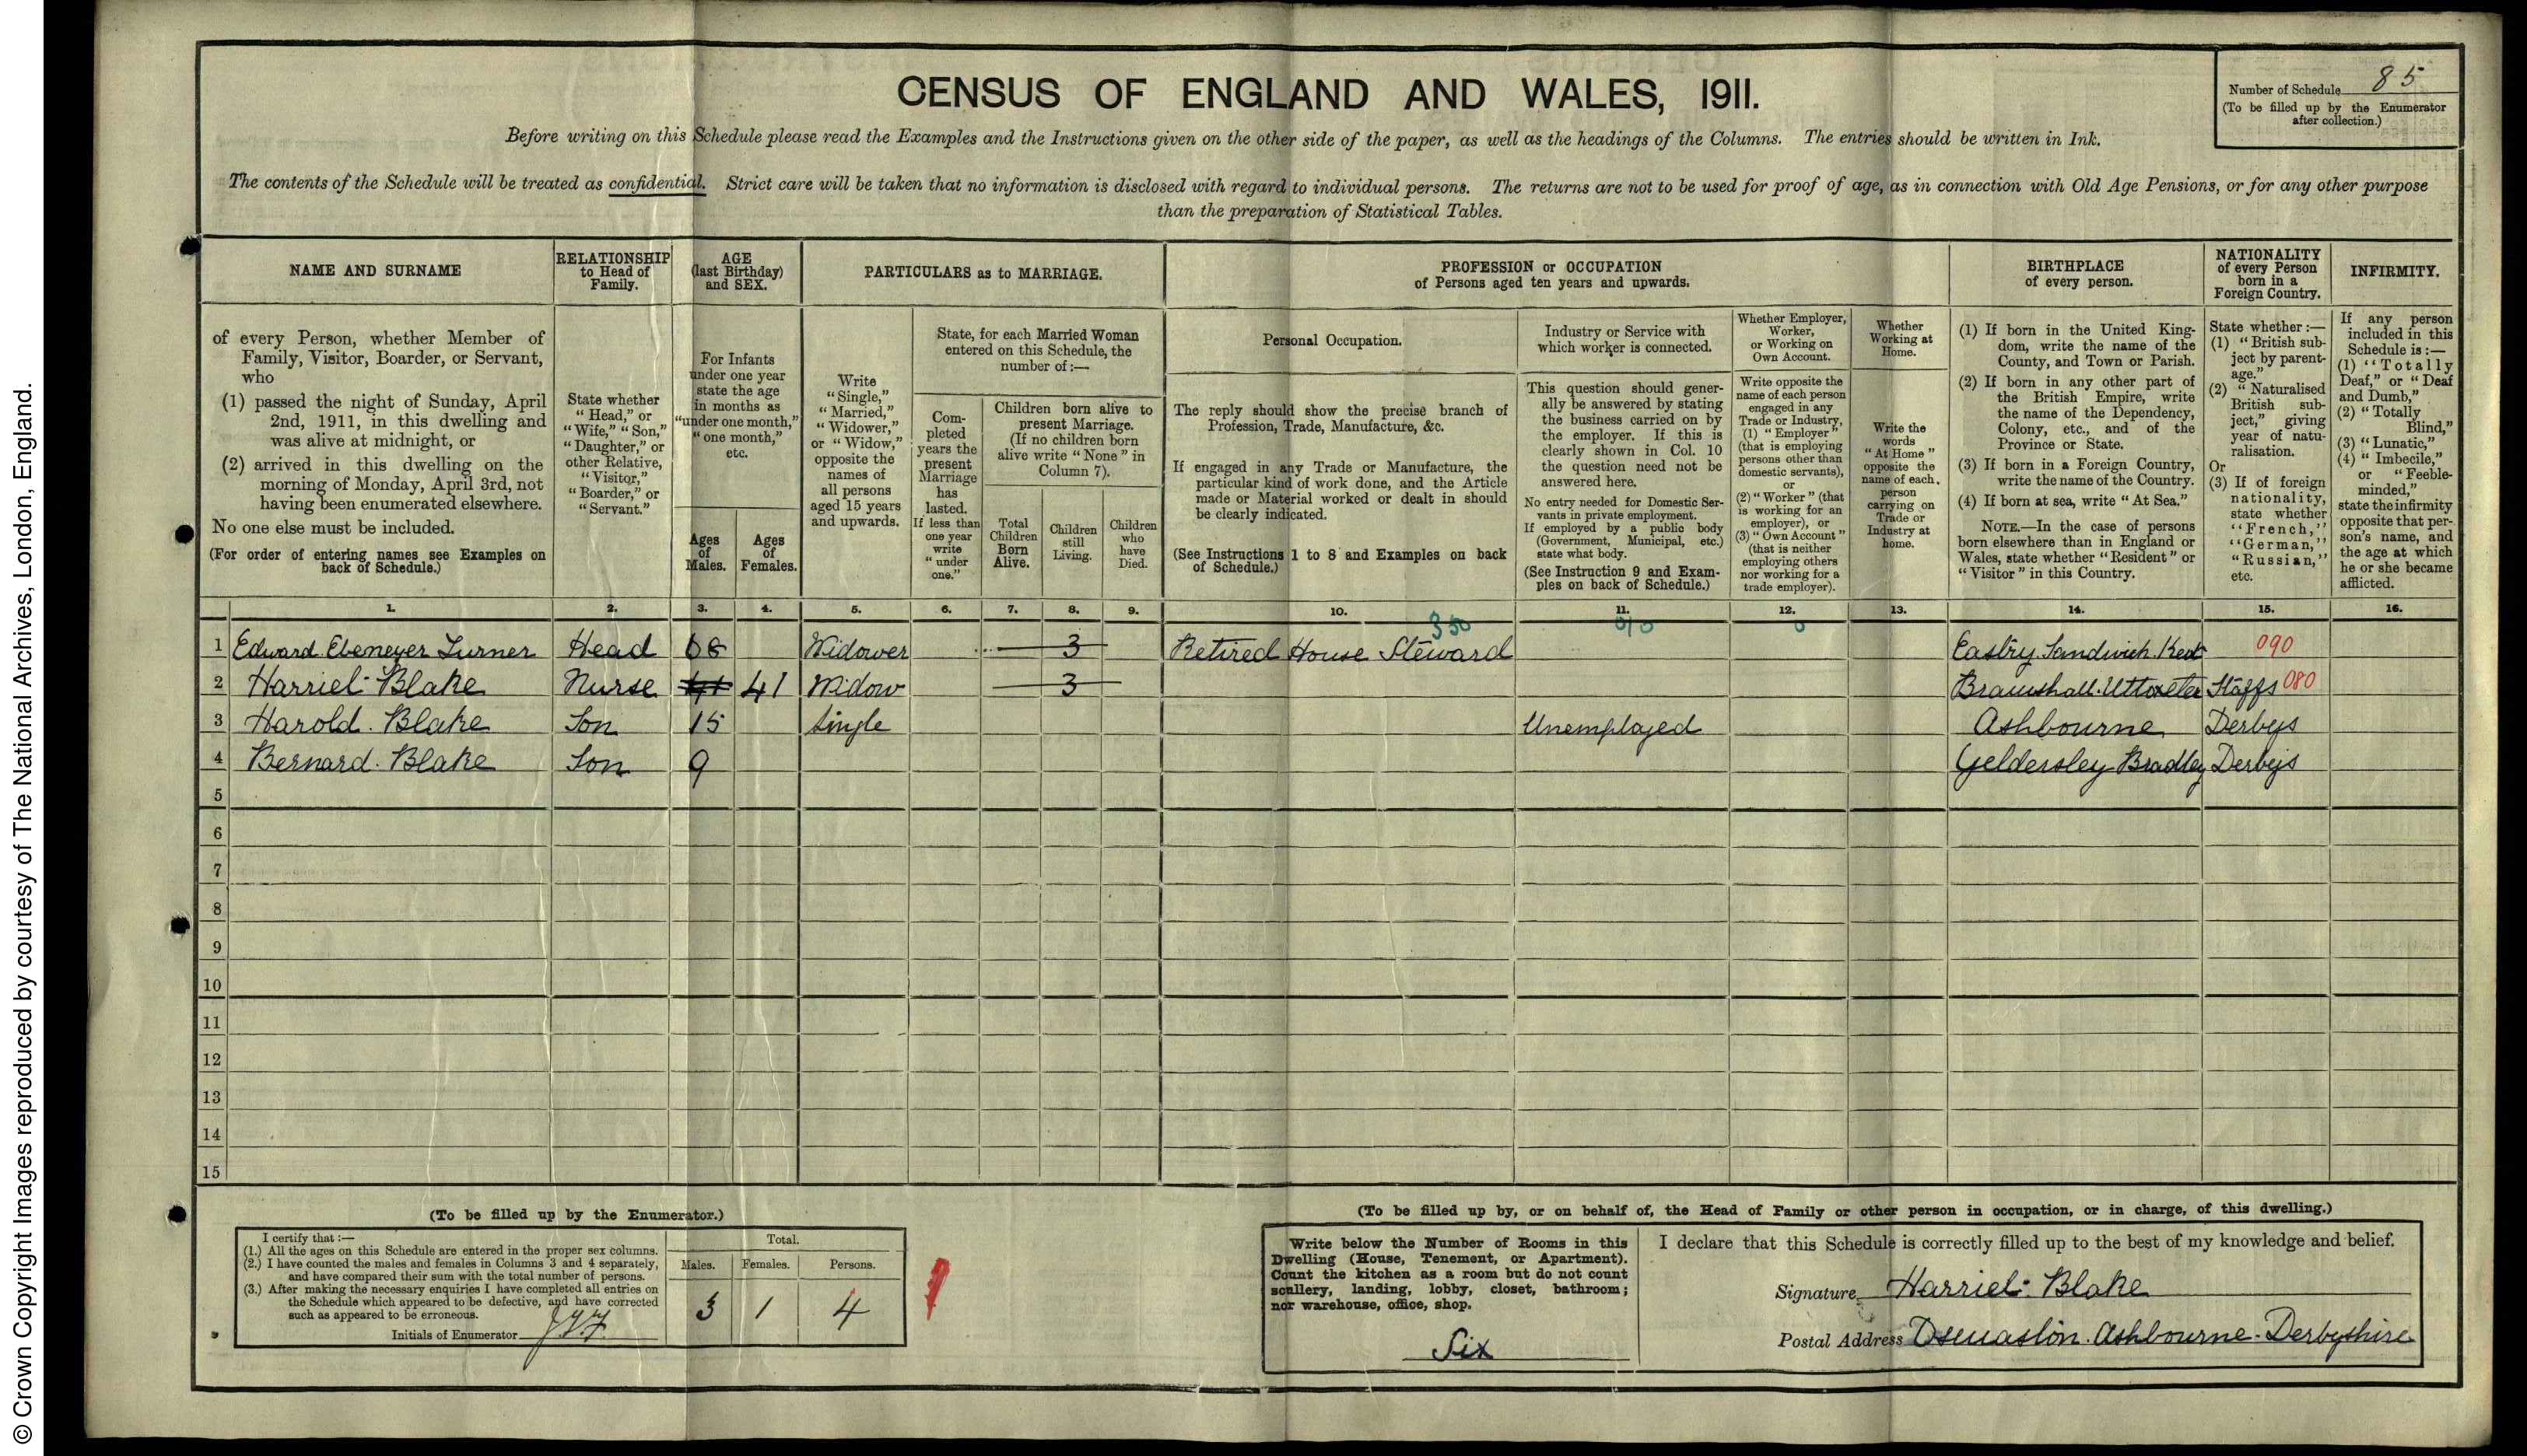 © Crown Copyright Images reproduced by courtesy of The National Archives, London, England.
CENSUS OF ENGLAND AND WALES, 1911.
Number of Schedule 85
(To be filled up by the Enumerator
after collection.)
Before writing on this Schedule please read the Examples and the Instructions given on the other side of the paper, as well as the headings of the Columns. The entries should be written in Ink.
The contents of the Schedule will be treated as confidential. Strict care will be taken that no information is disclosed with regard to individual persons. The returns are not to be used for proof of age, as in connection with Old Age Pensions, or for any other purpose
than the preparation of Statistical Tables.
NAME AND SURNAME
of every Person, whether Member of
Family, Visitor, Boarder, or Servant,
who
(1) passed the night of Sunday, April
2nd, 1911, in this dwelling and
was alive at midnight, or
(2) arrived in this dwelling on the
morning of Monday, April 3rd, not
having been enumerated elsewhere.
No one else must be included.
(For order of entering names see Examples on
back of Schedule.)
RELATIONSHIP
to Head of
Family.
State whether
"Head," or
"Wife," "Son,"
"Daughter," or
other Relative,
"Visitor,"
"Boarder," or
"Servant."
AGE
(last Birthday)
and SEX.
For Infants
under one year
state the age
in months as
"under one month,"
"one month,"
etc.
Ages
of
Males.
Ages
of
Females.
PARTICULARS as to MARRIAGE.
Write
"Single,"
"Married,"
"Widower,"
or "Widow,"
opposite the
names of
all persons
aged 15 years
and upwards.
State, for each Married Woman
entered on this Schedule, the
number of:—
Com-
pleted
years the
present
Marriage
has
lasted.
If less than
one year
write
"under
one."
Children born alive to
present Marriage.
(If no children born
alive write "None" in
Column 7).
Total
Children
Born
Alive.
Children
still
Living.
Children
who
have
Died.
PROFESSION or OCCUPATION
of Persons aged ten years and upwards.
Personal Occupation.
The reply should show the precise branch of
Profession, Trade, Manufacture, &c.
If engaged in any Trade or Manufacture, the
particular kind of work done, and the Article
made or Material worked or dealt in should
be clearly indicated.
(See Instructions 1 to 8 and Examples on back
of Schedule.)
Industry or Service with
which worker is connected.
This question should gener-
ally be answered by stating
the business carried on by
the employer. If this is
clearly shown in Col. 10
the question need not be
answered here.
No entry needed for Domestic Ser-
vants in private employment.
If employed by a public body
(Government, Municipal, etc.)
state what body.
(See Instruction 9 and Exam-
ples on back of Schedule.)
Whether Employer,
Worker,
or Working on
Own Account.
Write opposite the
name of each person
engaged in any
Trade or Industry,
(1) "Employer"
(that is employing
persons other than
domestic servants),
or
(2) "Worker" (that
is working for an
employer), or
(3) "Own Account"
(that is neither
employing others
nor working for a
trade employer).
Whether
Working at
Home.
Write the
words
"At Home"
opposite the
name of each
person
carrying on
Trade or
Industry at
home.
BIRTHPLACE
of every person.
(1) If born in the United King-
dom, write the name of the
County, and Town or Parish.
(2) If born in any other part of
the British Empire, write
the name of the Dependency,
Colony, etc., and of the
Province or State.
(3) If born in a Foreign Country,
write the name of the Country.
(4) If born at sea, write "At Sea."
NOTE.—In the case of persons
born elsewhere than in England or
Wales, state whether "Resident" or
"Visitor" in this Country.
NATIONALITY
of every Person
born in a
Foreign Country.
State whether:—
(1) "British sub-
ject by parent-
age."
(2) "Naturalised
British sub-
ject," giving
year of natu-
ralisation.
Or
(3) If of foreign
nationality,
state whether
"French,"
"German,"
"Russian,"
etc.
INFIRMITY.
If any person
included in this
Schedule is:—
(1) "Totally
Deaf," or "Deaf
and Dumb,"
(2) "Totally
Blind,"
(3) "Lunatic,"
(4) "Imbecile,"
or "Feeble-
minded,"
state the infirmity
opposite that per-
son's name, and
the age at which
he or she became
afflicted.
1. 2. 3. 4. 5. 6. 7. 8. 9. 10. 11. 12. 13. 14. 15. 16.
350 0
1 Edward Ebenezer Turner Head Widower 3 Retired House Steward Eastry Sandwich Kent 090
2 Harriet Blake Nurse 41 41 Widow 3 Bramshall Uttoxeter Staffs 080
3 Harold Blake Son 15 Single Unemployed Ashbourne Derbys
4 Bernard Blake Son 9 Geldersley Bradley Derbys
5
6
7
8
9
10
11
12
13
14
15
(To be filled up by the Enumerator.)
I certify that:—
(1.) All the ages on this Schedule are entered in the proper sex columns.
(2.) I have counted the males and females in Columns 3 and 4 separately,
and have compared their sum with the total number of persons.
(3.) After making the necessary enquiries I have completed all entries on
the Schedule which appeared to be defective, and have corrected
such as appeared to be erroneous.
Initials of Enumerator
Total.
Males. Females. Persons.
3 1 4
(To be filled up by, or on behalf of, the Head of Family or other person in occupation, or in charge, of this dwelling.)
Write below the Number of Rooms in this
Dwelling (House, Tenement, or Apartment).
Count the kitchen as a room but do not count
scullery, landing, lobby, closet, bathroom;
nor warehouse, office, shop.
Six
I declare that this Schedule is correctly filled up to the best of my knowledge and belief.
Signature Harriet Blake
Postal Address Osmaston Ashbourne Derbyshire